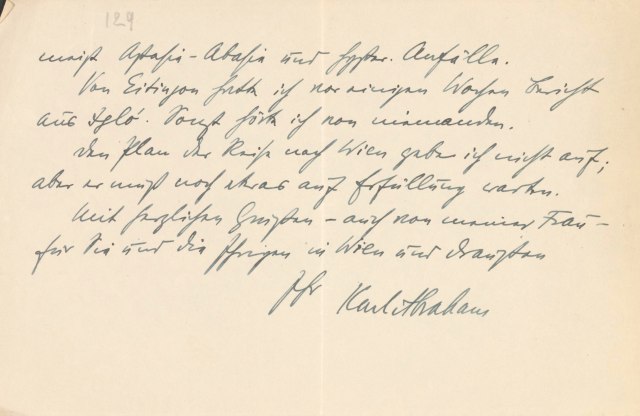 129
meist Astasie-Abasie und hyster. Anfälle.
Von Eitingon hatte ich vor einigen Wochen Bericht
aus Igló. Sonst hörte ich von niemandem.
Den Plan der Reise nach Wien gebe ich nicht auf;
aber er muß noch etwas auf Erfüllung warten.
Mit herzlichen Grüßen – auch von meiner Frau –
für Sie und die Ihrigen in Wien und draußen
Ihr Karl Abraham